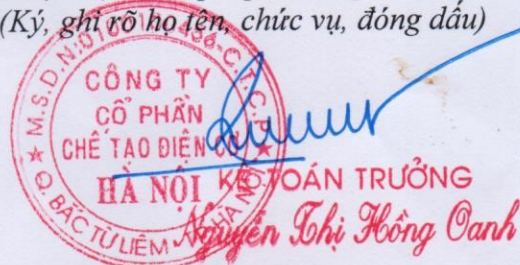 (Ký, ghi rõ họ tên, chức vụ, đóng dấu)
CÔNG TY
CỔ PHẦN
CHẾ TẠO ĐIỆN
HÀ NỘI
★ M.S.D.N:
C.T.C.P ★
Q. BẮC TỪ LIÊM
HÀ NỘI
KẾ TOÁN TRƯỞNG
Nguyễn Thị Hồng Oanh